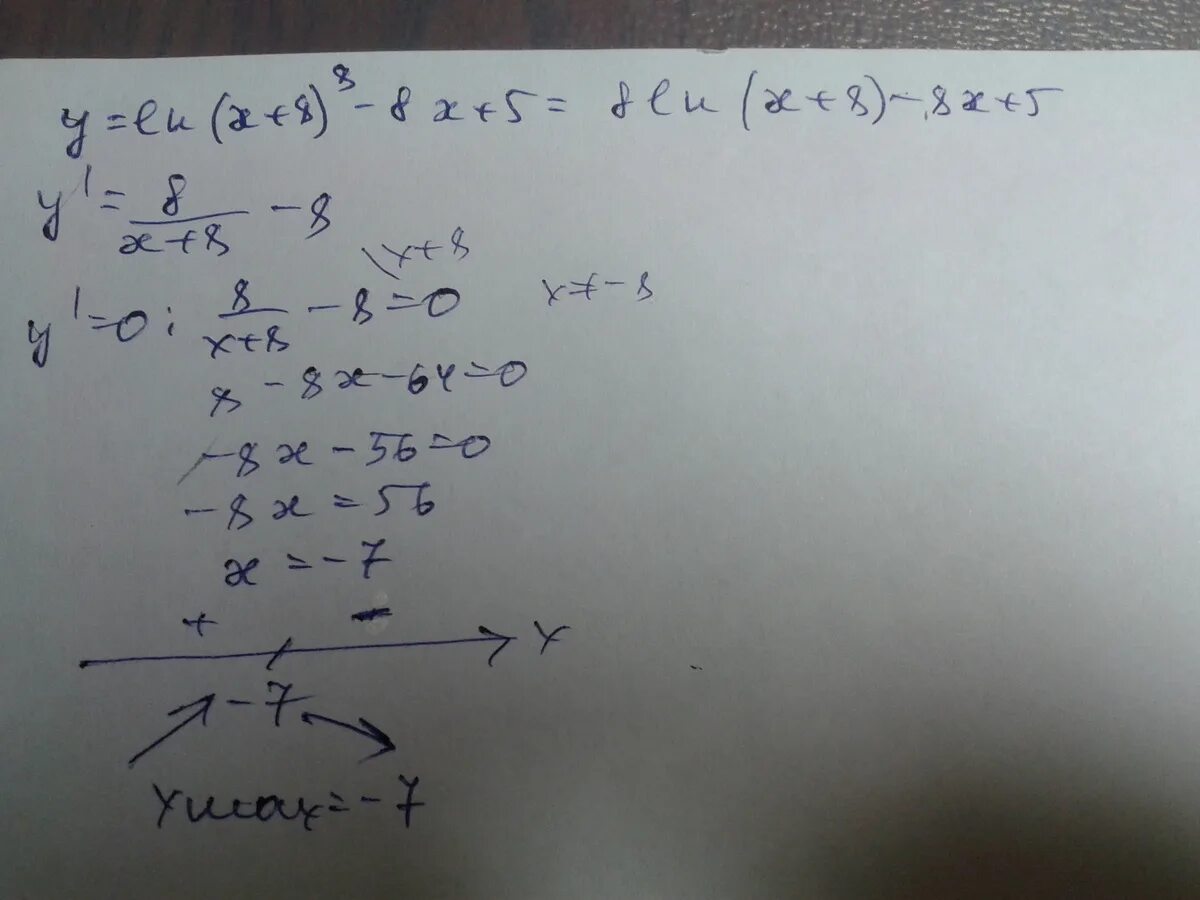 y = ln(x+8)⁸ - 8x+5 = 8ln(x+8) - 8x+5
y' = 8/(x+8) - 8
\x+8
y'=0: 8/(x+8) - 8 = 0 x≠-8
8 - 8x - 64 = 0
-8x - 56 = 0
-8x = 56
x = -7
+ -
x
-7
Xmax = -7